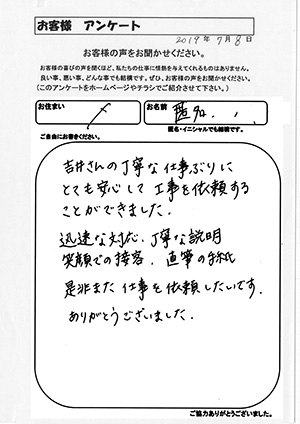 お客様 アンケート
2019年7月8日
お客様の声をお聞かせください。
お客様の喜びの声を聞くほど、私たちの仕事に情熱を与えてくれるものはありません。
良い事、悪い事、どんな事でも結構です。ぜひ、お客様の声をお聞かせください。
(このアンケートをホームページやチラシでご紹介させて下さい。)
お住まい
お名前 匿名
匿名・イニシャルでも結構です。
ご自由にお書きください。
吉井さんの丁寧な仕事ぶりに
とても安心して工事を依頼する
ことができました。
迅速な対応、丁寧な説明
笑顔での接客、直筆の手紙
是非また仕事を依頼したいです。
ありがとうございました。
ご協力ありがとうございました。